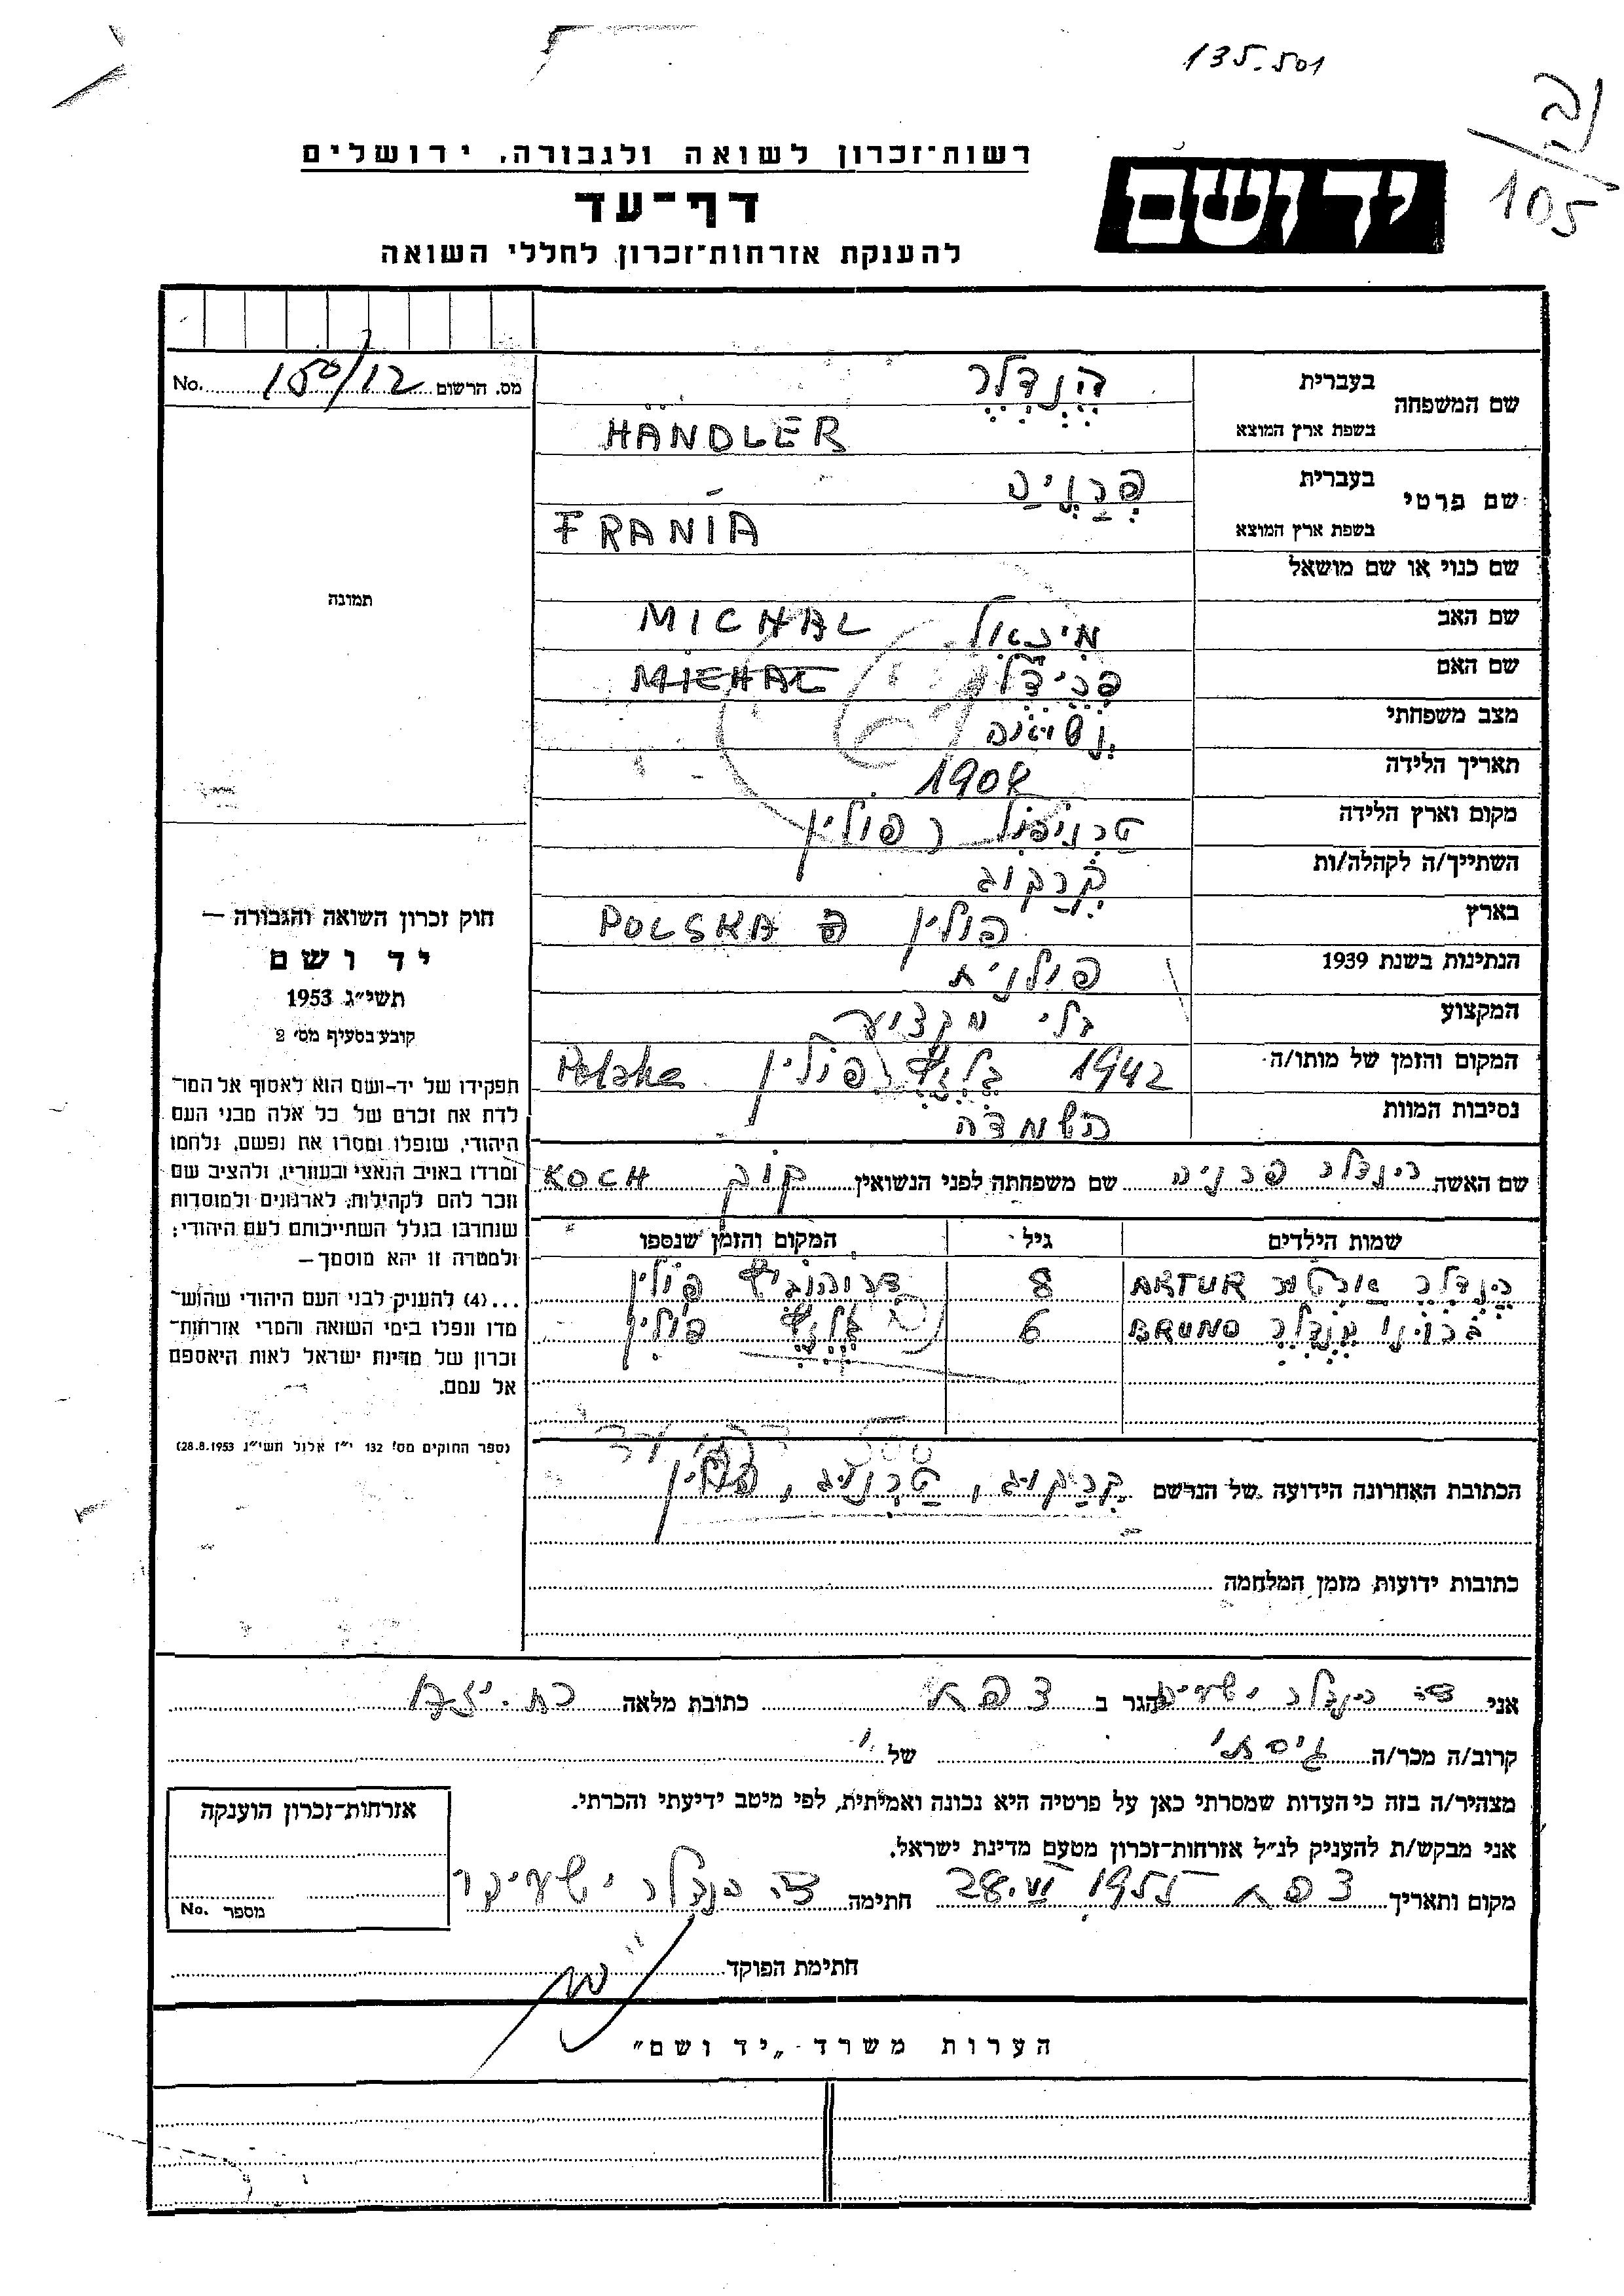 135.501
105
רשות־זכרון לשואה ולגבורה, ירושלים
יד ושם
דף־עד
להענקת אזרחות־זכרון לחללי השואה
מס. הרשום 150/12 No.
שם המשפחה בעברית הֶנְדְלֶר
בשפת ארץ המוצא HÄNDLER
שם פרטי בעברית פְרַנְיַה
בשפת ארץ המוצא FRANIA
שם כנוי או שם מושאל
שם האב מיכאל MICHAL
שם האם MICHAL
מצב משפחתי נשואה
תאריך הלידה 1904
מקום וארץ הלידה טרנופול פולין
השתייך/ה לקהלה/ות קרקוב
בארץ פולין POLSKA
הנתינות בשנת 1939 פולנית
המקצוע בלי מקצוע
המקום והזמן של מותו/ה 1942 בלזץ פולין Polska
נסיבות המוות השמדה
שם האשה הינדלר פרניה שם משפחתה לפני הנשואין קוך KOCH
שמות הילדים גיל המקום והזמן שנספו
הנדלר ארטור ARTUR 8 דרוהוביץ פולין
ברונו הנדלר BRUNO 6 בלזץ פולין
הכתובת האחרונה הידועה של הנרשם קרקוב, טרנוב, פולין
כתובות ידועות מזמן המלחמה
תמונה
חוק זכרון השואה והגבורה —
יד ושם
תשי״ג 1953
קובע בסעיף מס׳ 2
תפקידו של יד-ושם הוא לאסוף אל המו־
לדת את זכרם של כל אלה מבני העם
היהודי, שנפלו ומסרו את נפשם, נלחמו
ומרדו באויב הנאצי ובעוזריו, ולהציב שם
וזכר להם לקהילות, לארגונים ולמוסדות
שנחרבו בגלל השתייכותם לעם היהודי;
ולמטרה זו יהא מוסמך—
...(4) להעניק לבני העם היהודי שהוש־
מדו ונפלו בימי השואה והמרי אזרחות־
זכרון של מדינת ישראל לאות היאספם
אל עמם.
(ספר החוקים מס׳ 132 י״ז אלול תשי״ג 28.8.1953)
אני הנדלר הגר ב צפת כתובת מלאה
קרוב/ה מכר/ה גיסתי של
מצהיר/ה בזה כי העדות שמסרתי כאן על פרטיה היא נכונה ואמיתית, לפי מיטב ידיעתי והכרתי.
אני מבקש/ת להעניק לנ״ל אזרחות־זכרון מטעם מדינת ישראל.
מקום ותאריך צפת 28.VI 1955 חתימה הנדלר
אזרחות־זכרון הוענקה
מספר No.
חתימת הפוקד
הערות משרד „יד ושם״